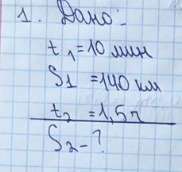 1. Дано:
t₁=10 мин
S₁ =140 км
t₂ =1,5ч
S₂-?